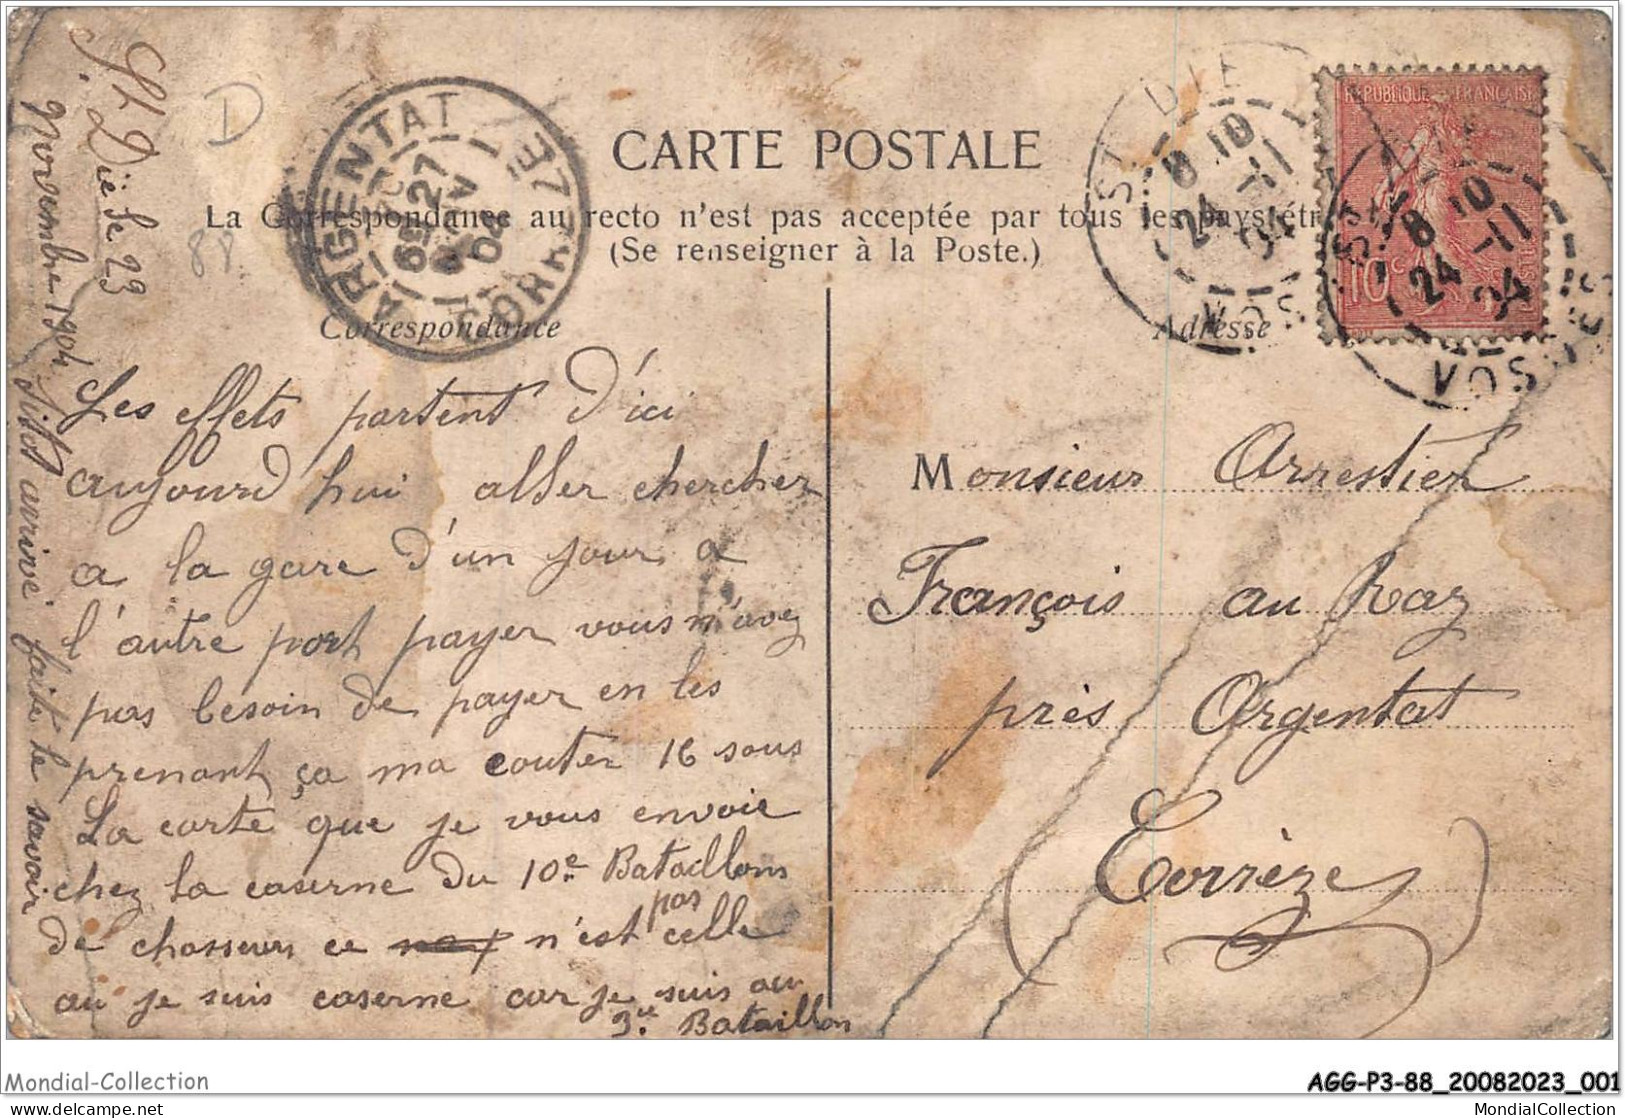 St Dié le 23
Novembre 1904
Sitot arrivé faite le savoir
D
88
CARTE POSTALE
La Correspondance au recto n'est pas acceptée par tous les pays étr
(Se renseigner à la Poste.)
ARGENTAT
CORRÈZE
6E 27
NOV
04
ST DIÉ
8 10
24 -11
04
VOSGES
ST DIÉ
8 10
24 -11
04
VOSGES
REPUBLIQUE FRANÇAISE
10c
POSTES
Correspondance
Adresse
Les effets partent d'ici
aujourd hui alller chercher
a la gare d'un jour a
l'autre port payer vous n'avez
pas besoin de payer en les
prenant ça ma couter 16 sous
La carte que je vous envoie
chez la caserne du 10e Bataillons
de chasseurs ce n'est pas celle
au je suis caserne car je suis au
3e Bataillon
Monsieur Arrestier
François au Raz
près Argentat
Corrèze
Mondial-Collection
AGG-P3-88_20082023_001
delcampe.net
MondialCollection